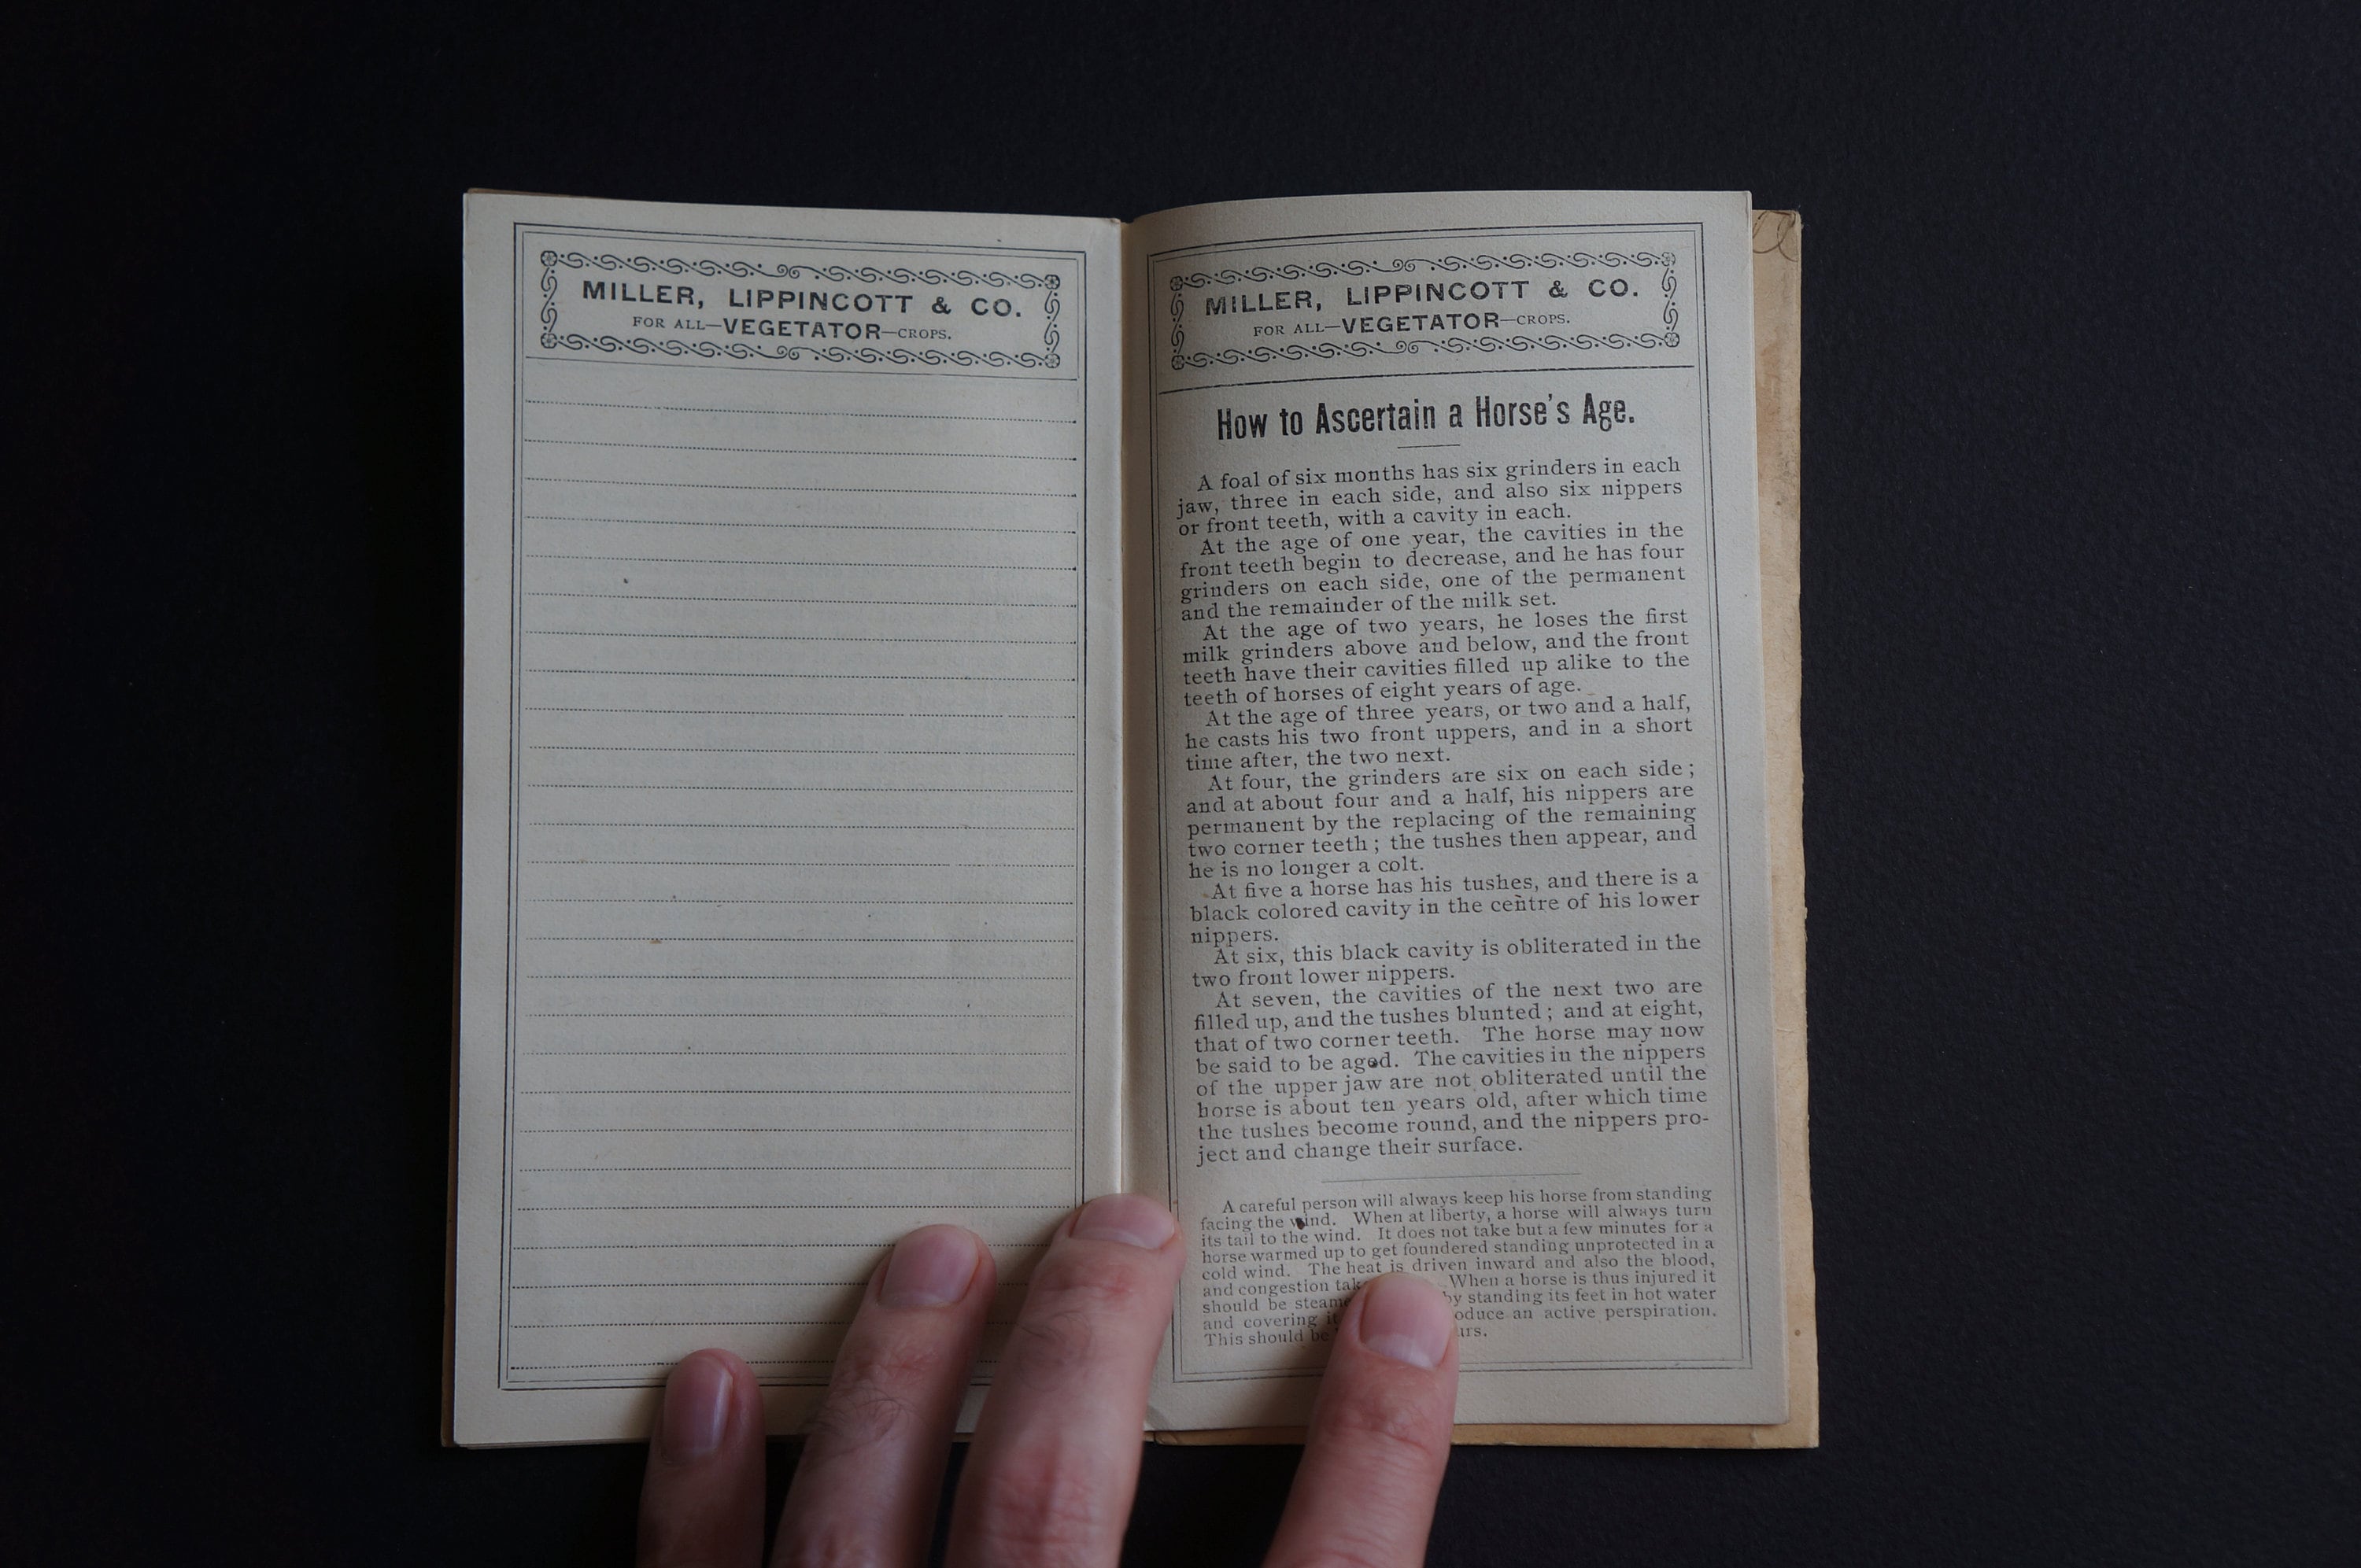 MILLER, LIPPINCOTT & CO.
FOR ALL—VEGETATOR—CROPS.
MILLER, LIPPINCOTT & CO.
FOR ALL—VEGETATOR—CROPS.
How to Ascertain a Horse's Age.
A foal of six months has six grinders in each
jaw, three in each side, and also six nippers
or front teeth, with a cavity in each.
At the age of one year, the cavities in the
front teeth begin to decrease, and he has four
grinders on each side, one of the permanent
and the remainder of the milk set.
At the age of two years, he loses the first
milk grinders above and below, and the front
teeth have their cavities filled up alike to the
teeth of horses of eight years of age.
At the age of three years, or two and a half,
he casts his two front uppers, and in a short
time after, the two next.
At four, the grinders are six on each side;
and at about four and a half, his nippers are
permanent by the replacing of the remaining
two corner teeth; the tushes then appear, and
he is no longer a colt.
At five a horse has his tushes, and there is a
black colored cavity in the centre of his lower
nippers.
At six, this black cavity is obliterated in the
two front lower nippers.
At seven, the cavities of the next two are
filled up, and the tushes blunted; and at eight,
that of two corner teeth. The horse may now
be said to be aged. The cavities in the nippers
of the upper jaw are not obliterated until the
horse is about ten years old, after which time
the tushes become round, and the nippers pro-
ject and change their surface.
A careful person will always keep his horse from standing
facing the wind. When at liberty, a horse will always turn
its tail to the wind. It does not take but a few minutes for a
horse warmed up to get foundered standing unprotected in a
cold wind. The heat is driven inward and also the blood,
and congestion When a horse is thus injured it
should be by standing its feet in hot water
and covering an active perspiration.
This should be